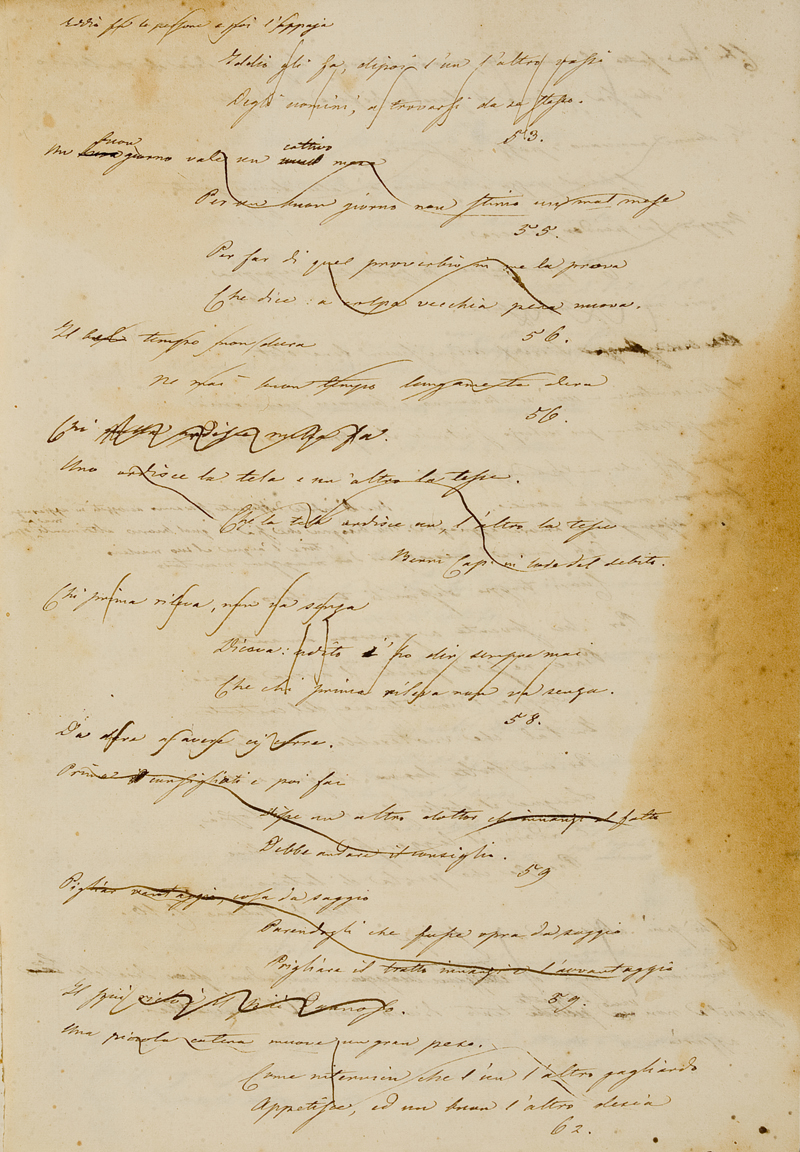 Iddio fa le persone e poi l'appaja
Iddio gli fa, dipoi l'un l'altro vassi
Degli uomini, a trovarsi da se stesso.
53.
Un buon giorno vale un cattivo mese
Per un buon giorno non stimo un mal mese
55.
Per far di quel proverbio in me la prova
Che dice: a colpa vecchia pena nuova.
56.
Il bel tempo non dura
Ne mai buon tempo lungamente dura
56.
Chi fa.
Uno ordisce la tela e un altro la tesse.
Che la tela ordisce un, l'altro la tesse
Berni Cap. in lode del debito.
Chi prima rileva, non va senza
Diceva: udito i' ho dir sempre mai
Che chi prima rileva non va senza.
58.
Da
Prima consigliati e poi fai
Disse un altro dottor ch'innanzi al fatto
Debbe andare il consiglio.
59
Pigliar vantaggio, cosa da saggio
Parendogli che fusse opra da saggio
Pigliare il tratto innanzi e l'avvantaggio
59.
Il più
Una piccola catena muove un gran peso.
Come intervien che l'un l'altro gagliardo
Appetisce, ed un buon l'altro desia
62.